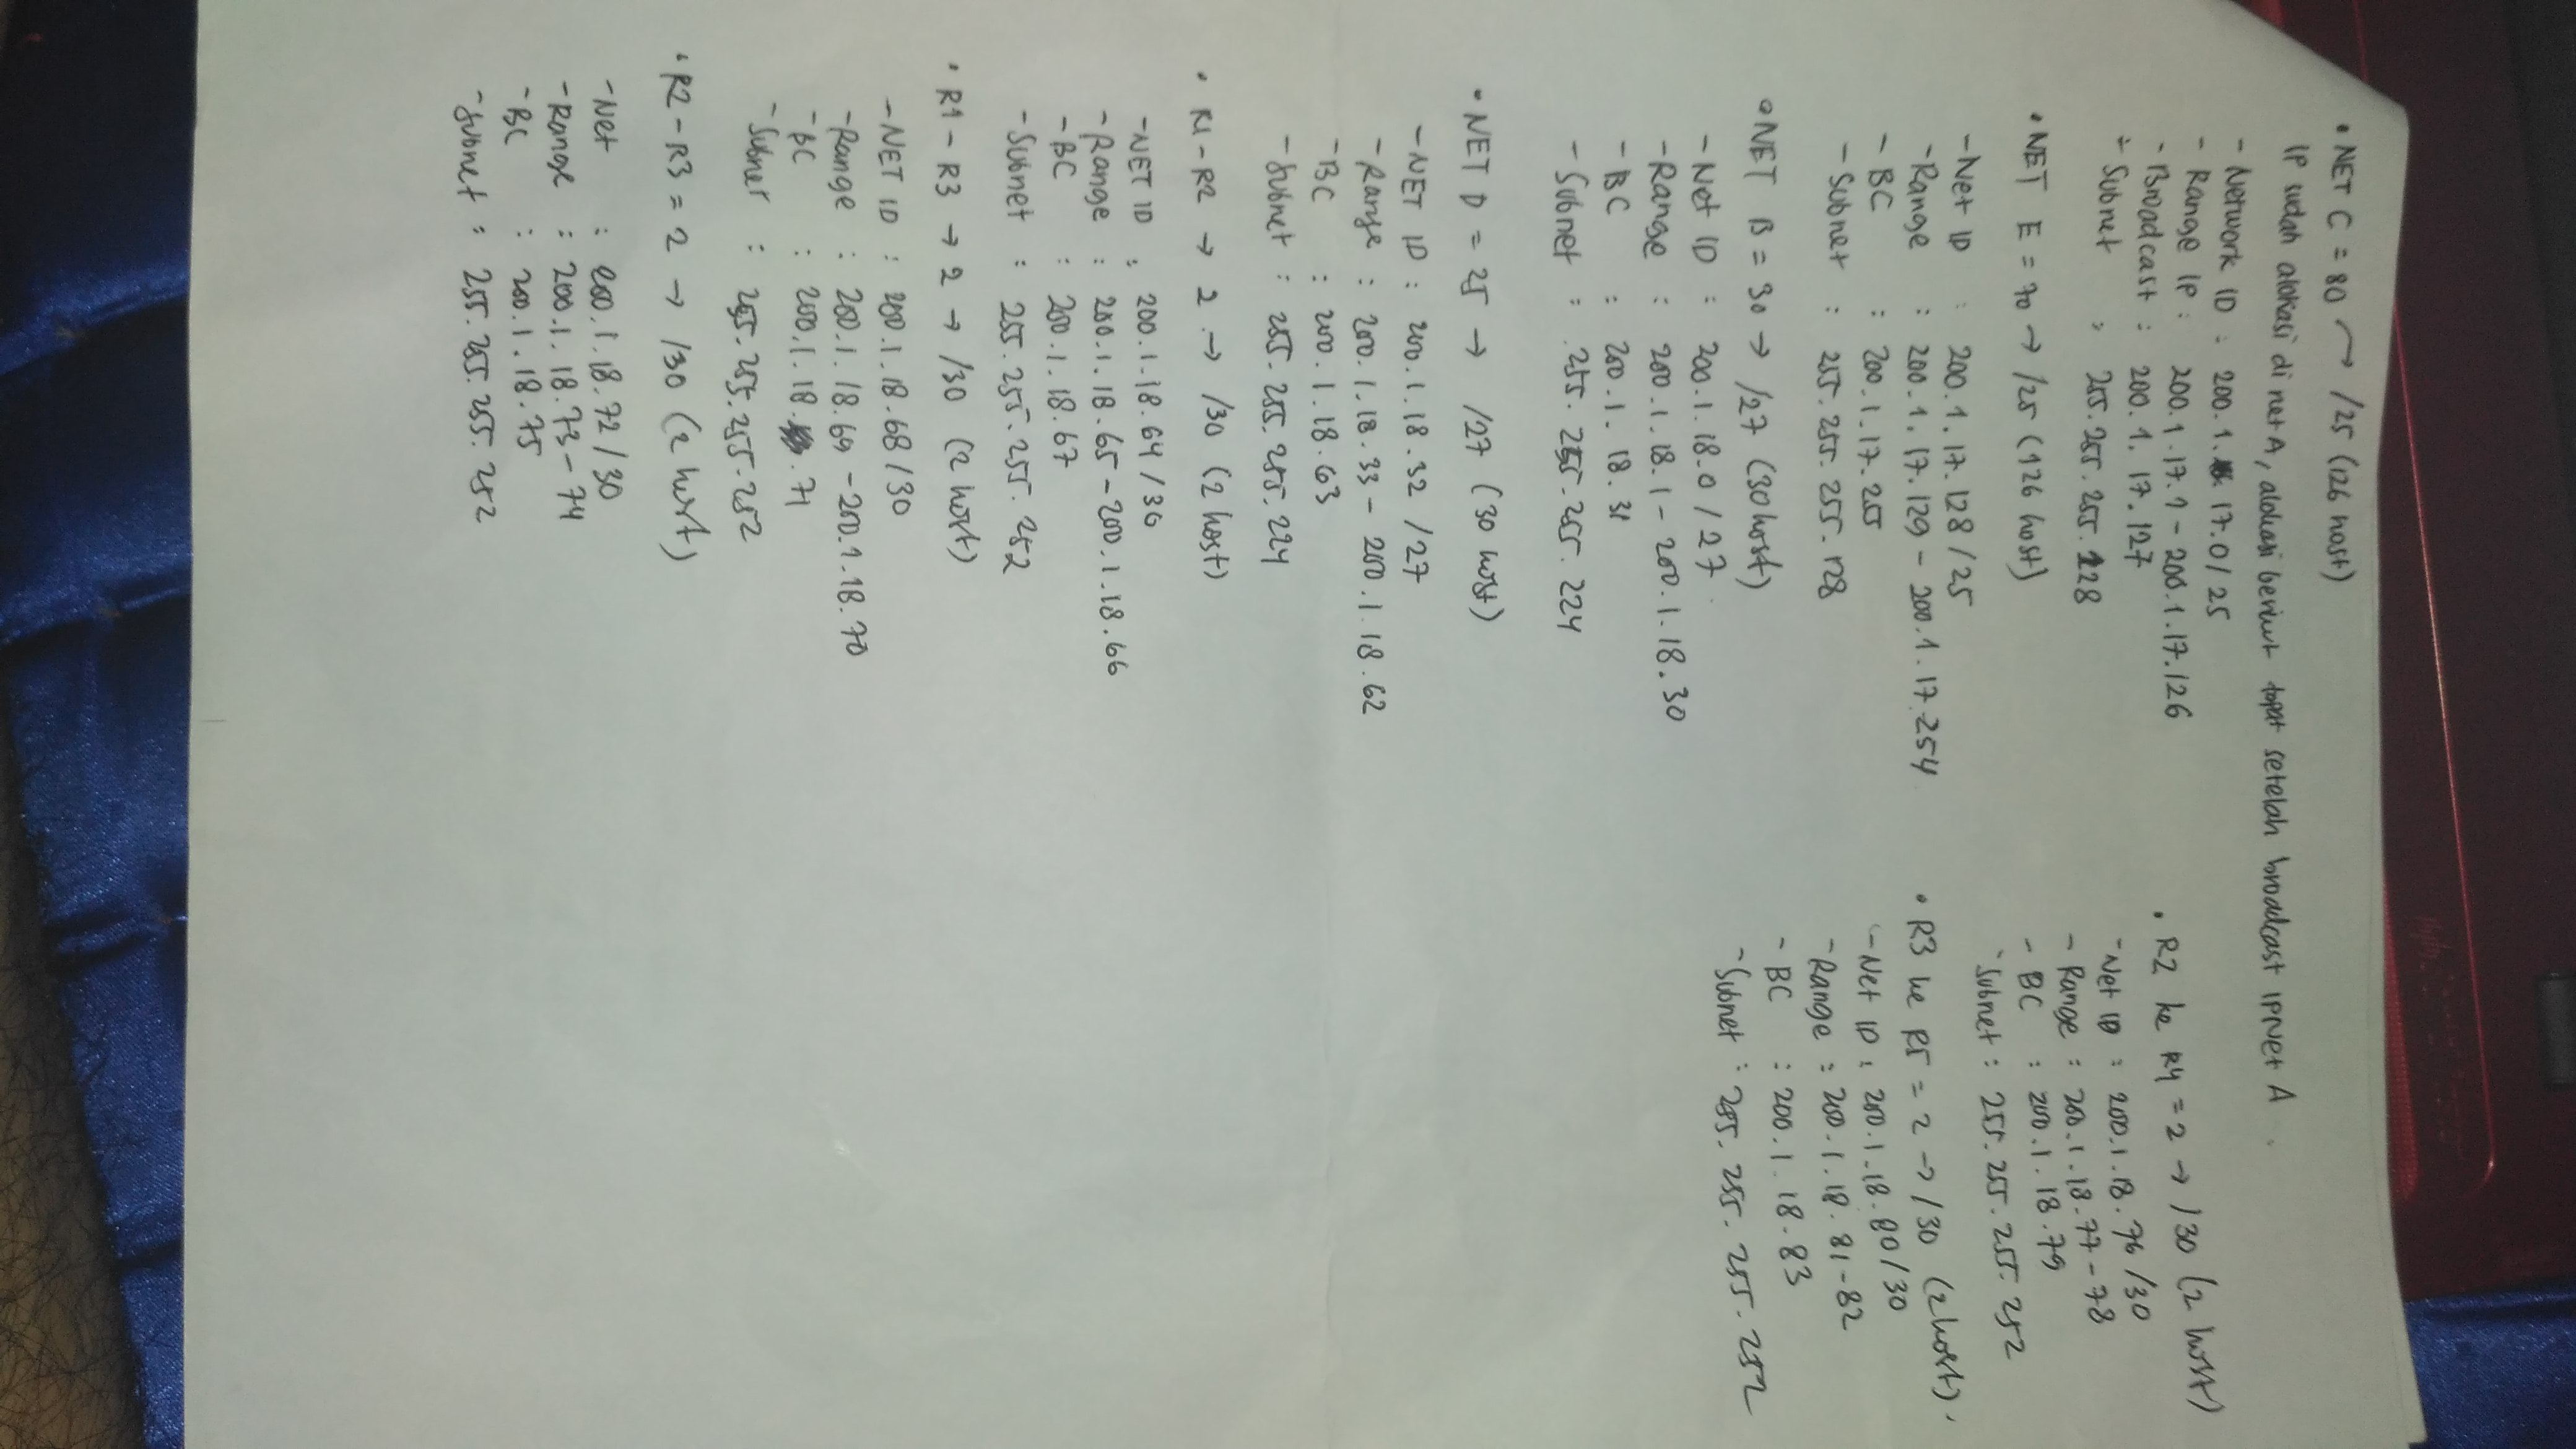 • NET C = 80 → /25 (126 host)
IP sudah alokasi di net A, alokasi berikut tepat setelah broadcast IP Net A
- Network ID : 200.1. 17.0/25
- Range IP : 200.1.17.1 - 200.1.17.126
- Broadcast : 200.1.17.127
- Subnet : 255.255.255.128
• NET E = 70 → /25 (126 host)
- Net ID : 200.1.17.128/25
- Range : 200.1.17.129 - 200.1.17.254
- BC : 200.1.17.255
- Subnet : 255.255.255.128
• NET B = 30 → /27 (30 host)
- Net ID : 200.1.18.0/27
- Range : 200.1.18.1 - 200.1.18.30
- BC : 200.1.18.31
- Subnet : 255.255.255.224
• NET D = 25 → /27 (30 host)
- NET ID : 200.1.18.32 /27
- Range : 200.1.18.33 - 200.1.18.62
- BC : 200.1.18.63
- Subnet : 255.255.255.224
• R1 - R2 → 2 → /30 (2 host)
- NET ID : 200.1.18.64/30
- Range : 200.1.18.65 - 200.1.18.66
- BC : 200.1.18.67
- Subnet : 255.255.255.252
• R1 - R3 → 2 → /30 (2 host)
- NET ID : 200.1.18.68/30
- Range : 200.1.18.69 - 200.1.18.70
- BC : 200.1.18. .71
- Subnet : 255.255.255.252
• R2 - R3 = 2 → /30 (2 host)
- Net : 200.1.18.72/30
- Range : 200.1.18.73 - 74
- BC : 200.1.18.75
- Subnet : 255.255.255.252
• R2 ke R4 = 2 → /30 (2 host)
- Net ID : 200.1.18.76/30
- Range : 200.1.18.77 - 78
- BC : 200.1.18.79
- Subnet : 255.255.255.252
• R3 ke R5 = 2 → /30 (2 host).
- Net ID : 200.1.18.80/30
- Range : 200.1.18.81-82
- BC : 200.1.18.83
- Subnet : 255.255.255.252